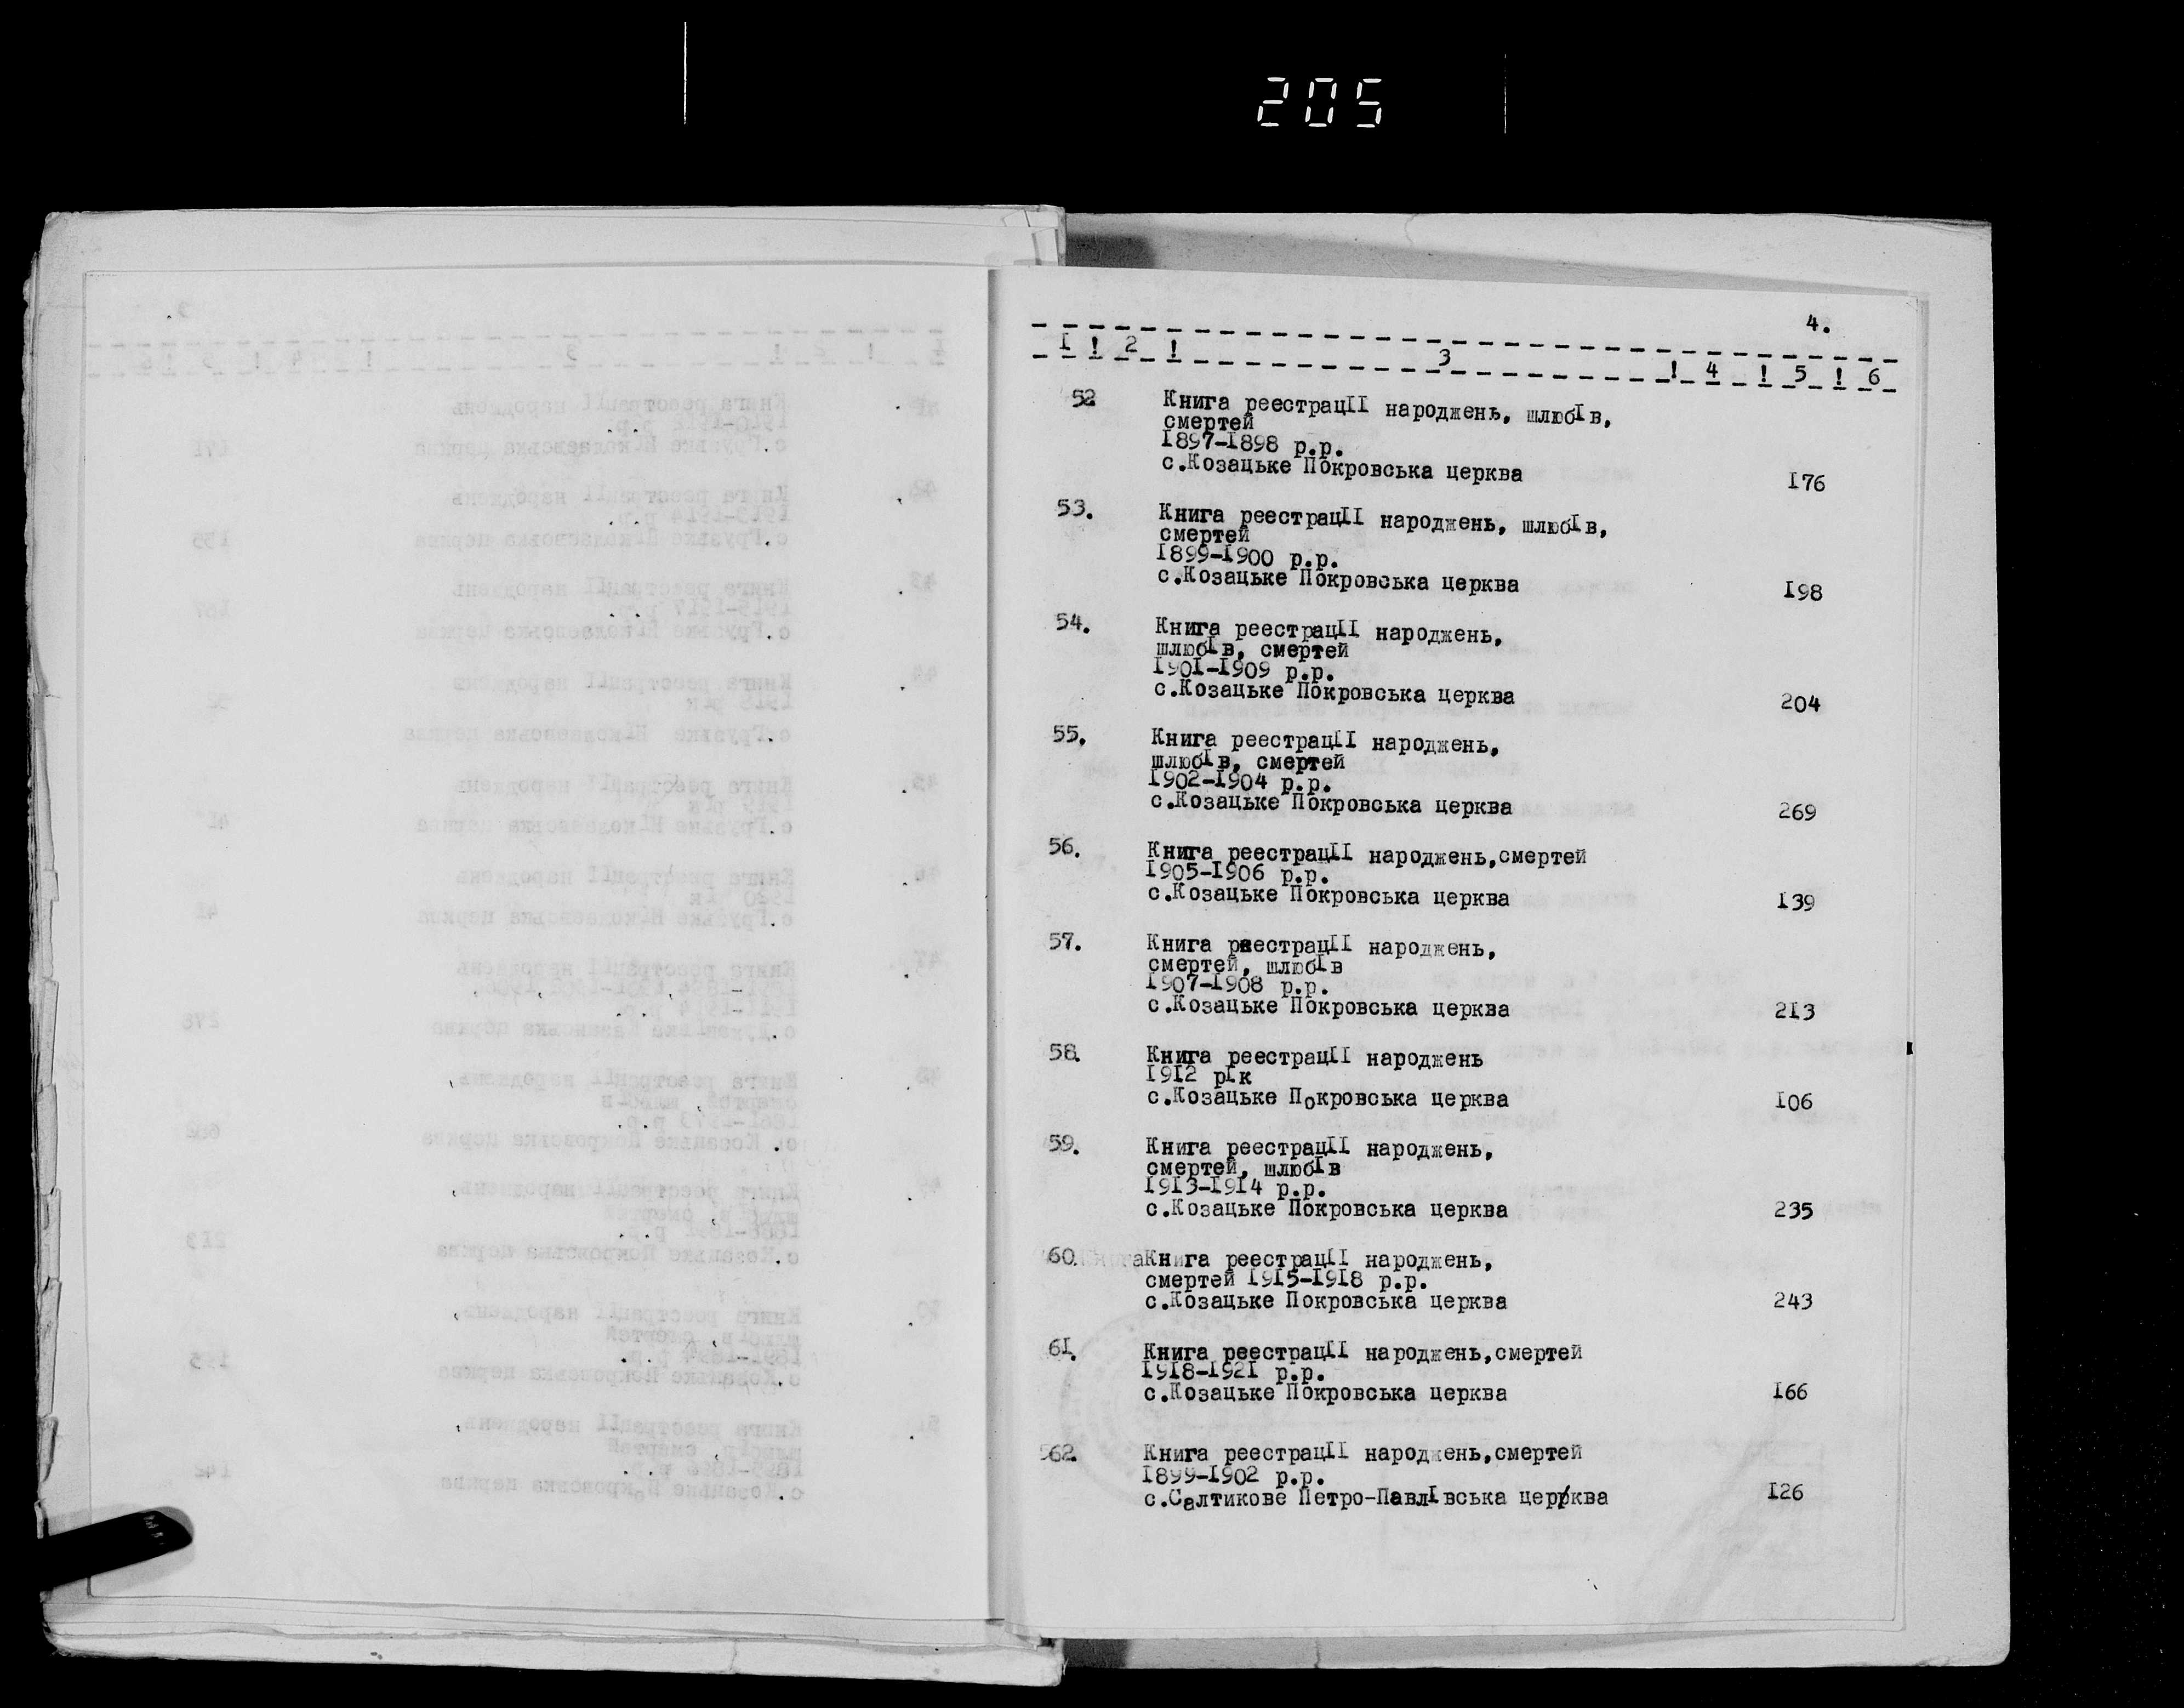 205
4.
I ! 2 ! 3 ! 4 ! 5 ! 6
52 Книга реестрацII народжень, шлюбIв,
смертей
I897-I898 р.р.
с.Козацьке Покровська церква I76
53. Книга реестрацII народжень, шлюбIв,
смертей
I899-I900 р.р.
с.Козацьке Покровська церква I98
54. Книга реестрацII народжень,
шлюбIв, смертей
I90I-I909 р.р.
с.Козацьке Покровська церква 204
55. Книга реестрацII народжень,
шлюбIв, смертей
I902-I904 р.р.
с.Козацьке Покровська церква 269
56. Книга реестрацII народжень,смертей
I905-I906 р.р.
с.Козацьке Покровська церква I39
57. Книга реестрацII народжень,
смертей, шлюбIв
I907-I908 р.р.
с.Козацьке Покровська церква 2I3
58. Книга реестрацII народжень
I9I2 рIк
с.Козацьке Покровська церква I06
59. Книга реестрацII народжень,
смертей, шлюбIв
I9I3-I9I4 р.р.
с.Козацьке Покровська церква 235
60. Книга реестрацII народжень,
смертей I9I5-I9I8 р.р.
с.Козацьке Покровська церква 243
6I. Книга реестрацII народжень,смертей
I9I8-I92I р.р.
с.Козацьке Покровська церква I66
562. Книга реестрацII народжень,смертей
I899-I902 р.р.
с.Салтикове Петро-ПавлIвська церква I26